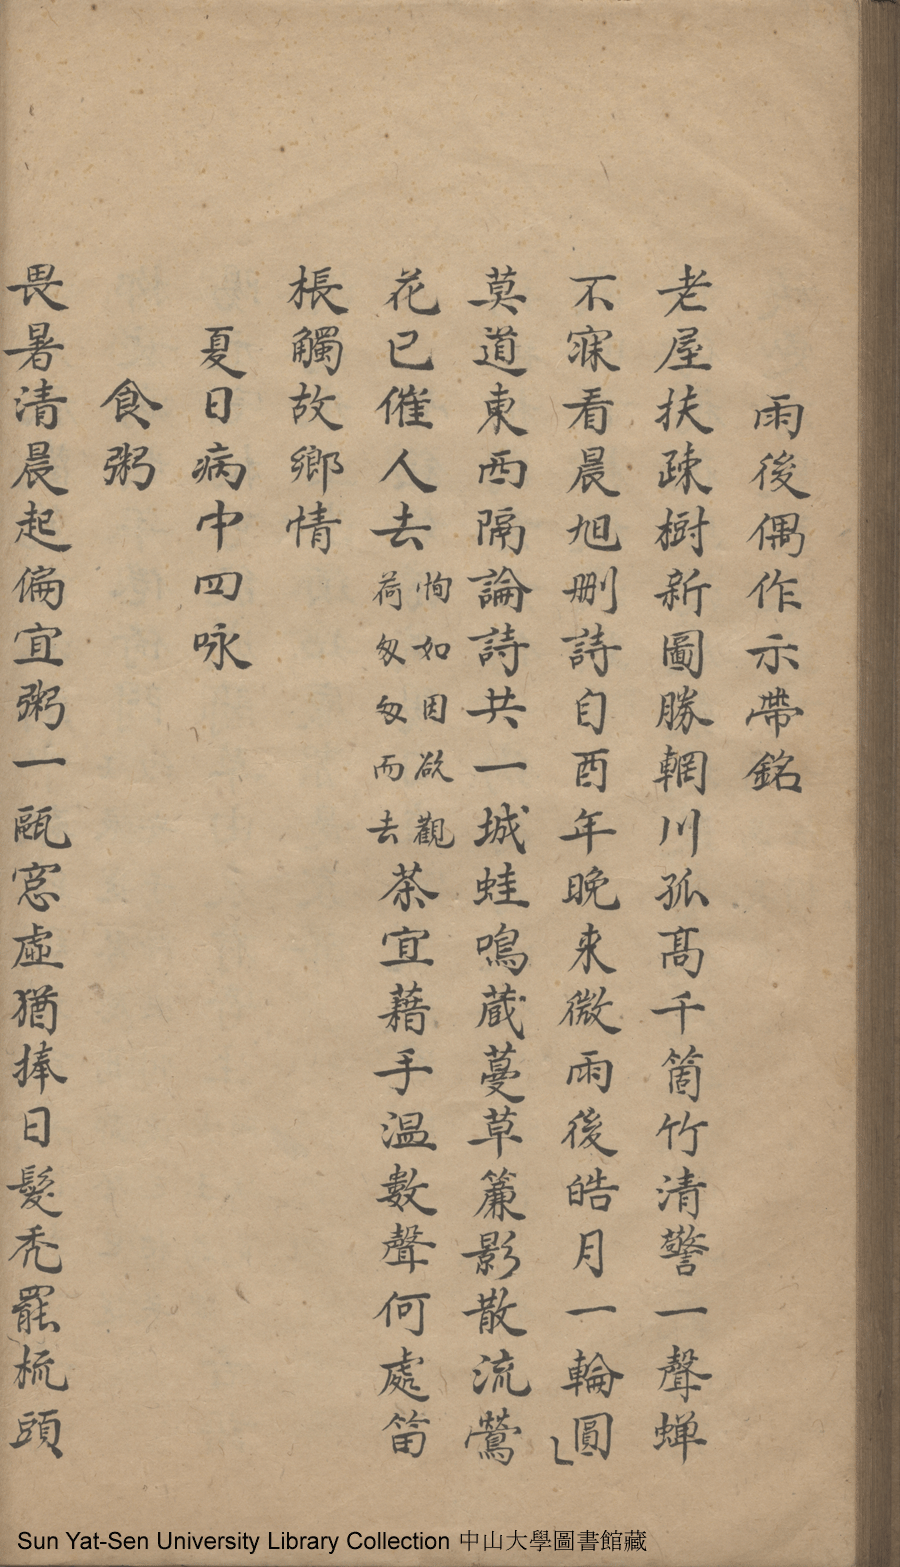 雨後偶作示帶銘
老屋扶疎樹新圖勝輞川孤髙千箇竹清警一聲蝉
不寐看晨旭刪詩自酉年晚来微雨後皓月一輪圓
莫道東西隔論詩共一城蛙鳴蔵蔓草簾影散流鶯
花已催人去恂如因欲觀荷匆匆而去茶宜藉手温數聲何處笛
棖觸故鄉情
夏日病中四咏
食粥
畏暑清晨起偏宜粥一甌窓虛猶捧日髮禿罷梳頭
Sun Yat-Sen University Library Collection 中山大學圖書館藏